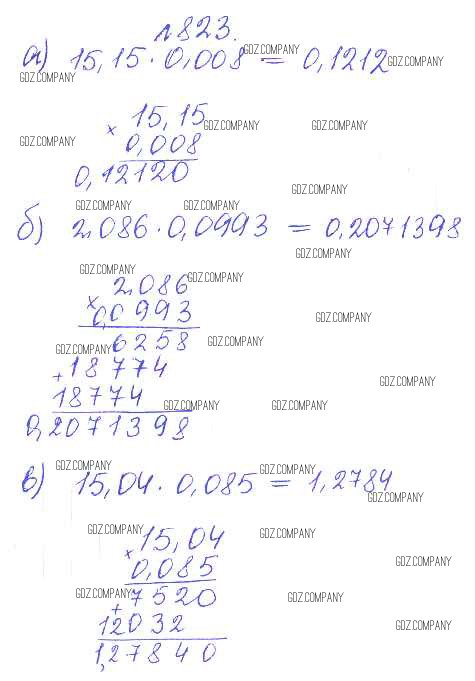 №823.
а) 15,15 · 0,008 = 0,1212
GDZ.COMPANY GDZ.COMPANY GDZ.COMPANY
× 15,15
GDZ.COMPANY GDZ.COMPANY
0,008
GDZ.COMPANY
0,12120
GDZ.COMPANY
GDZ.COMPANY GDZ.COMPANY
б) 2,086 · 0,0993 = 0,2071398
GDZ.COMPANY
GDZ.COMPANY GDZ.COMPANY
2,086
× 0,0993
GDZ.COMPANY
6258
GDZ.COMPANY GDZ.COMPANY
+ 18774
GDZ.COMPANY
18774
GDZ.COMPANY GDZ.COMPANY
0,2071398
GDZ.COMPANY GDZ.COMPANY
в) 15,04 · 0,085 = 1,2784
GDZ.COMPANY
GDZ.COMPANY GDZ.COMPANY
× 15,04
0,085
GDZ.COMPANY
GDZ.COMPANY GDZ.COMPANY
+ 7520
12032
GDZ.COMPANY
1,27840